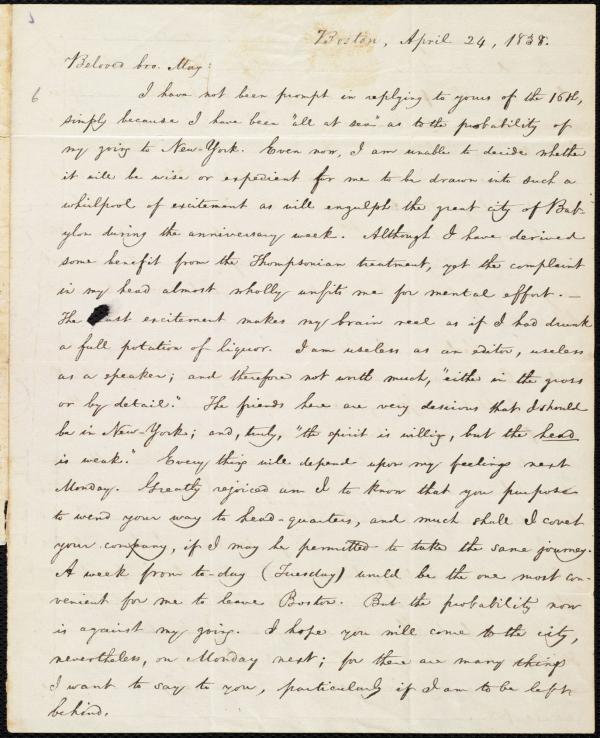 Boston, April 24, 1838.
Beloved bro. May:
I have not been prompt in replying to yours of the 16th,
simply because I have been "all at sea" as to the probability of
my going to New-York. Even now, I am unable to decide whether
it will be wise or expedient for me to be drawn into such a
whirlpool of excitement as will engulph the great city of Bab-
ylon during the anniversary week. Although I have derived
some benefit from the Thompsonian treatment, yet the complaint
in my head almost wholly unfits me for mental effort. —
The excitement makes my brain reel as if I had drunk
a full potation of liquor. I am useless as an editor, useless
as a speaker; and therefore not worth much, "either in the gross
or by detail." The friends here are very desirous that I should
be in New-York; and, truly, "the spirit is willing, but the head
is weak." Every thing will depend upon my feelings next
Monday. Greatly rejoiced am I to know that you purpose
to wend your way to head-quarters, and much shall I covet
your company, if I may be permitted to take the same journey.
A week from to-day (Tuesday) would be the one most con-
venient for me to leave Boston. But the probability now
is against my going. I hope you will come to the city,
nevertheless, on Monday next; for there are many things
I want to say to you, particularly if I am to be left
behind.